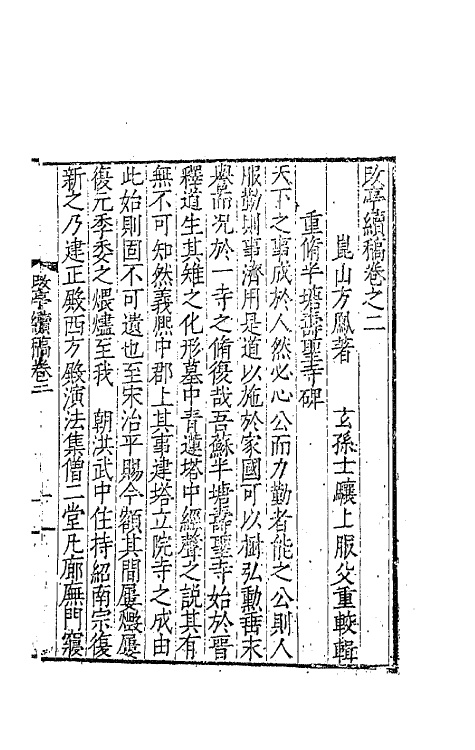 改亭續稿卷之二
崑山方鳳著　玄孫士驤上服父重較輯
重脩半塘壽聖寺碑
天下之事成於人然必心公而力勤者能之公則人
服勤則事濟用是道以施於家國可以樹弘勳垂末
譽而况於一寺之脩復哉吾蘇半塘壽聖寺始於晉
釋道生其雉之化形墓中青蓮塔中經聲之説其有
無不可知然義熙中郡上其事建塔立院寺之成由
此始則固不可遺也至宋治平賜今額其間屢燬屢
復元季委之煨燼至我　朝洪武中住持紹南宗復
新之乃建正殿西方殿演法集僧二堂凡廊廡門寢
改亭續稿卷二